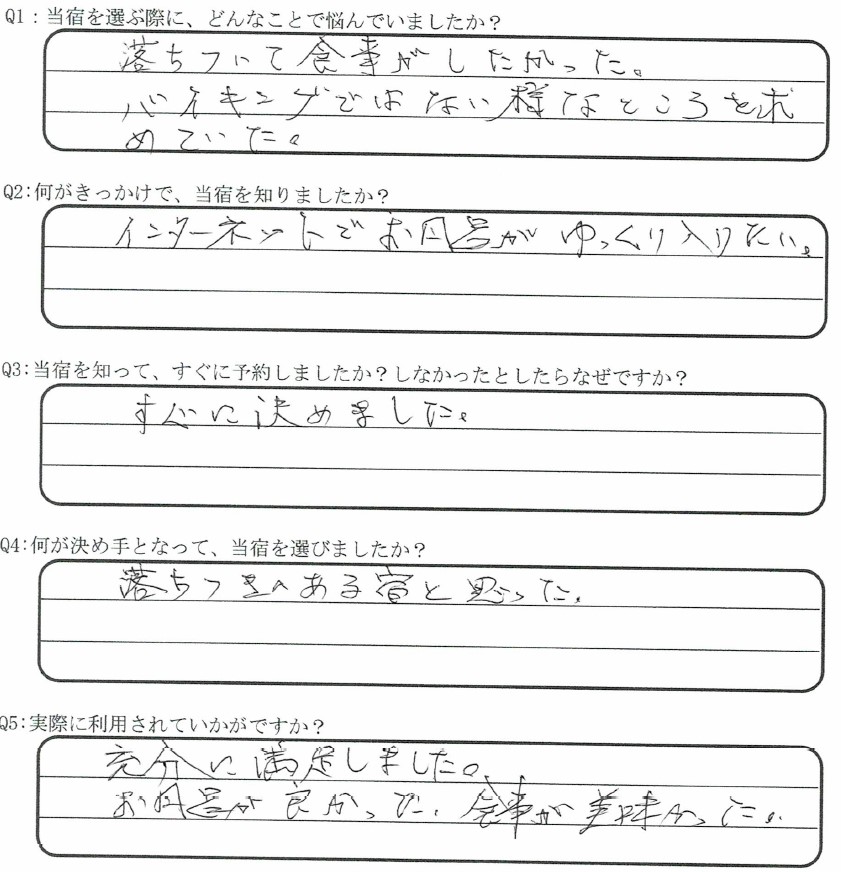 Q1：当宿を選ぶ際に、どんなことで悩んでいましたか？
落ちついて食事がしたかった。
バイキングではない様なところを求
めていた。
Q2:何がきっかけで、当宿を知りましたか？
インターネットでお風呂がゆっくり入りたい。
Q3:当宿を知って、すぐに予約しましたか？しなかったとしたらなぜですか？
すぐに決めました。
Q4:何が決め手となって、当宿を選びましたか？
落ちつきのある宿と思った。
Q5:実際に利用されていかがですか？
充分に満足しました。
お風呂が良かった、食事が美味かった。